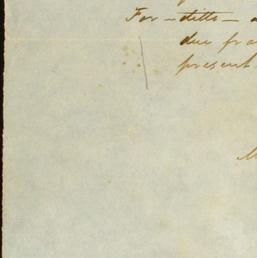 For – ditto –
due fra
present